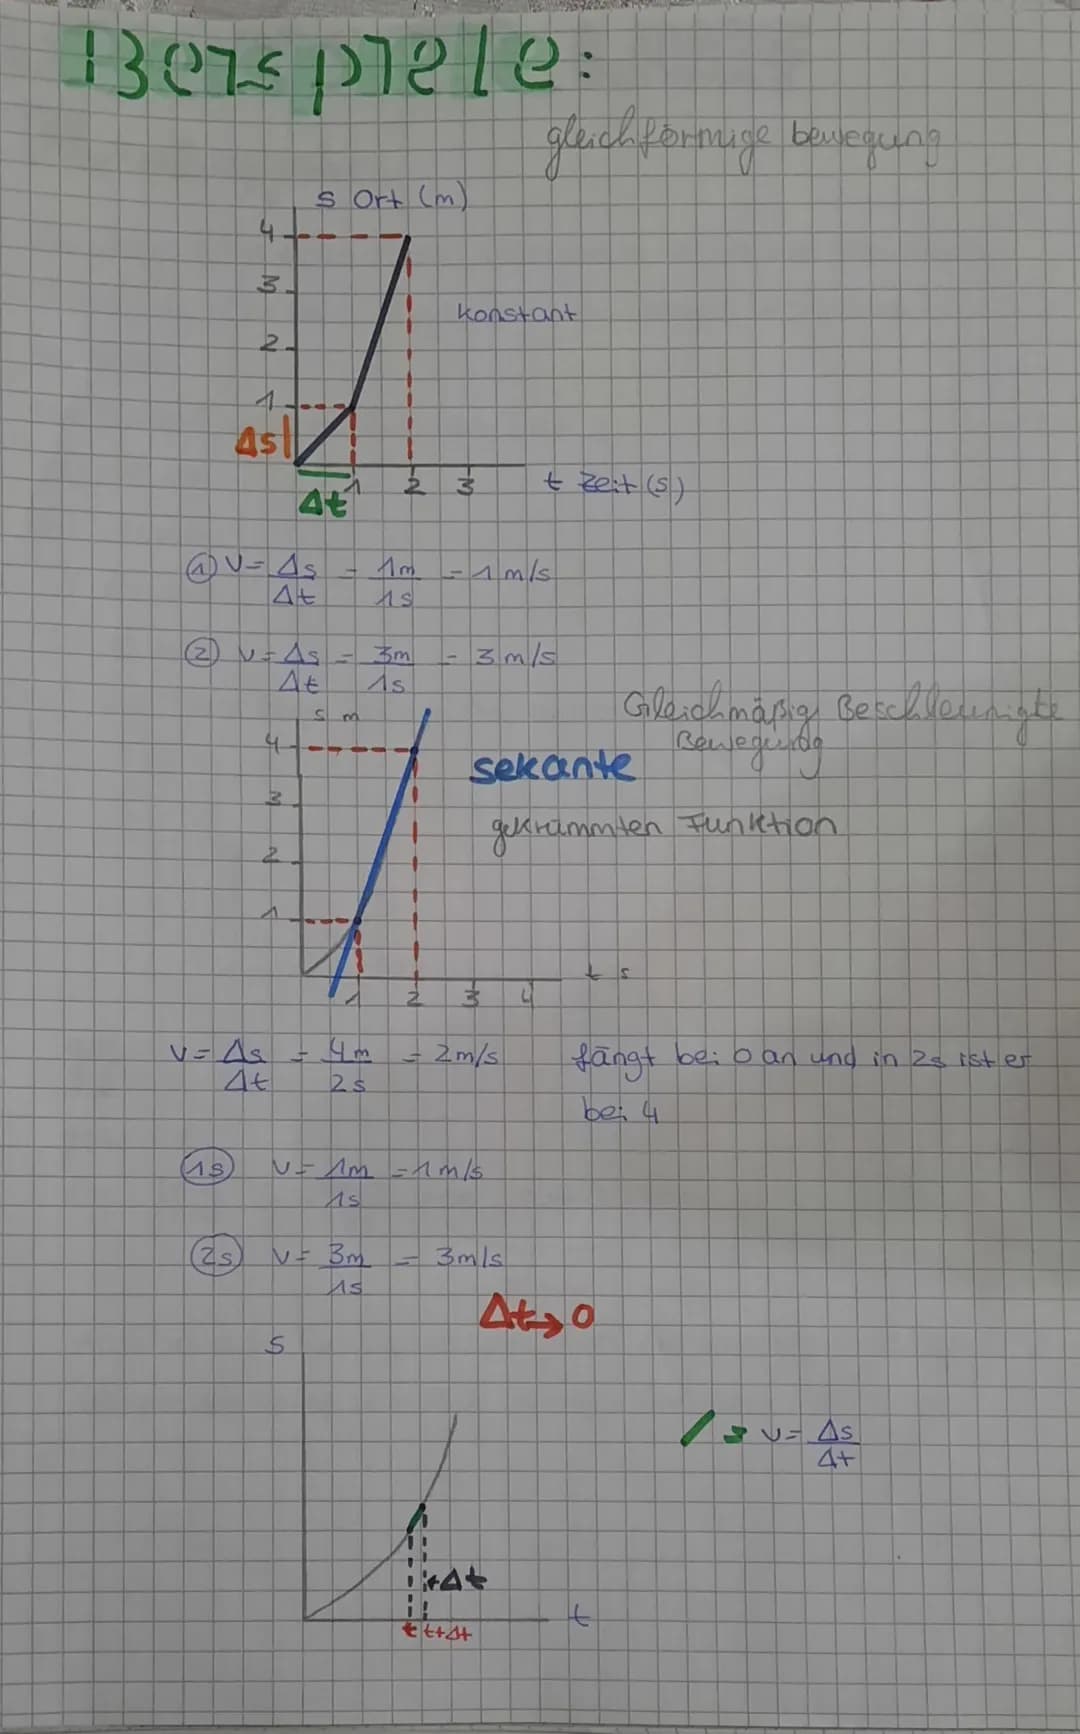 Beispiele:
gleichförmige bewegung
s Ort (m)
4
3
konstant
2
1
Δs
1 2 3 t Zeit (s)
Δt
① v = Δs/Δt = 1m/1s = 1 m/s
② v = Δs/Δt = 3m/1s = 3 m/s
Gleichmäßig Beschleunigte
Bewegung
s m
4
sekante
3
gekrümmten Funktion
2
1
t s
1 2 3 4
v = Δs/Δt = 4m/2s = 2m/s fängt bei 0 an und in 2s ist er
bei 4
1s v = 1m/1s = 1 m/s
2s v = 3m/1s = 3m/s
Δt → 0
s
v = Δs/Δt
Δt
t
t t+Δt